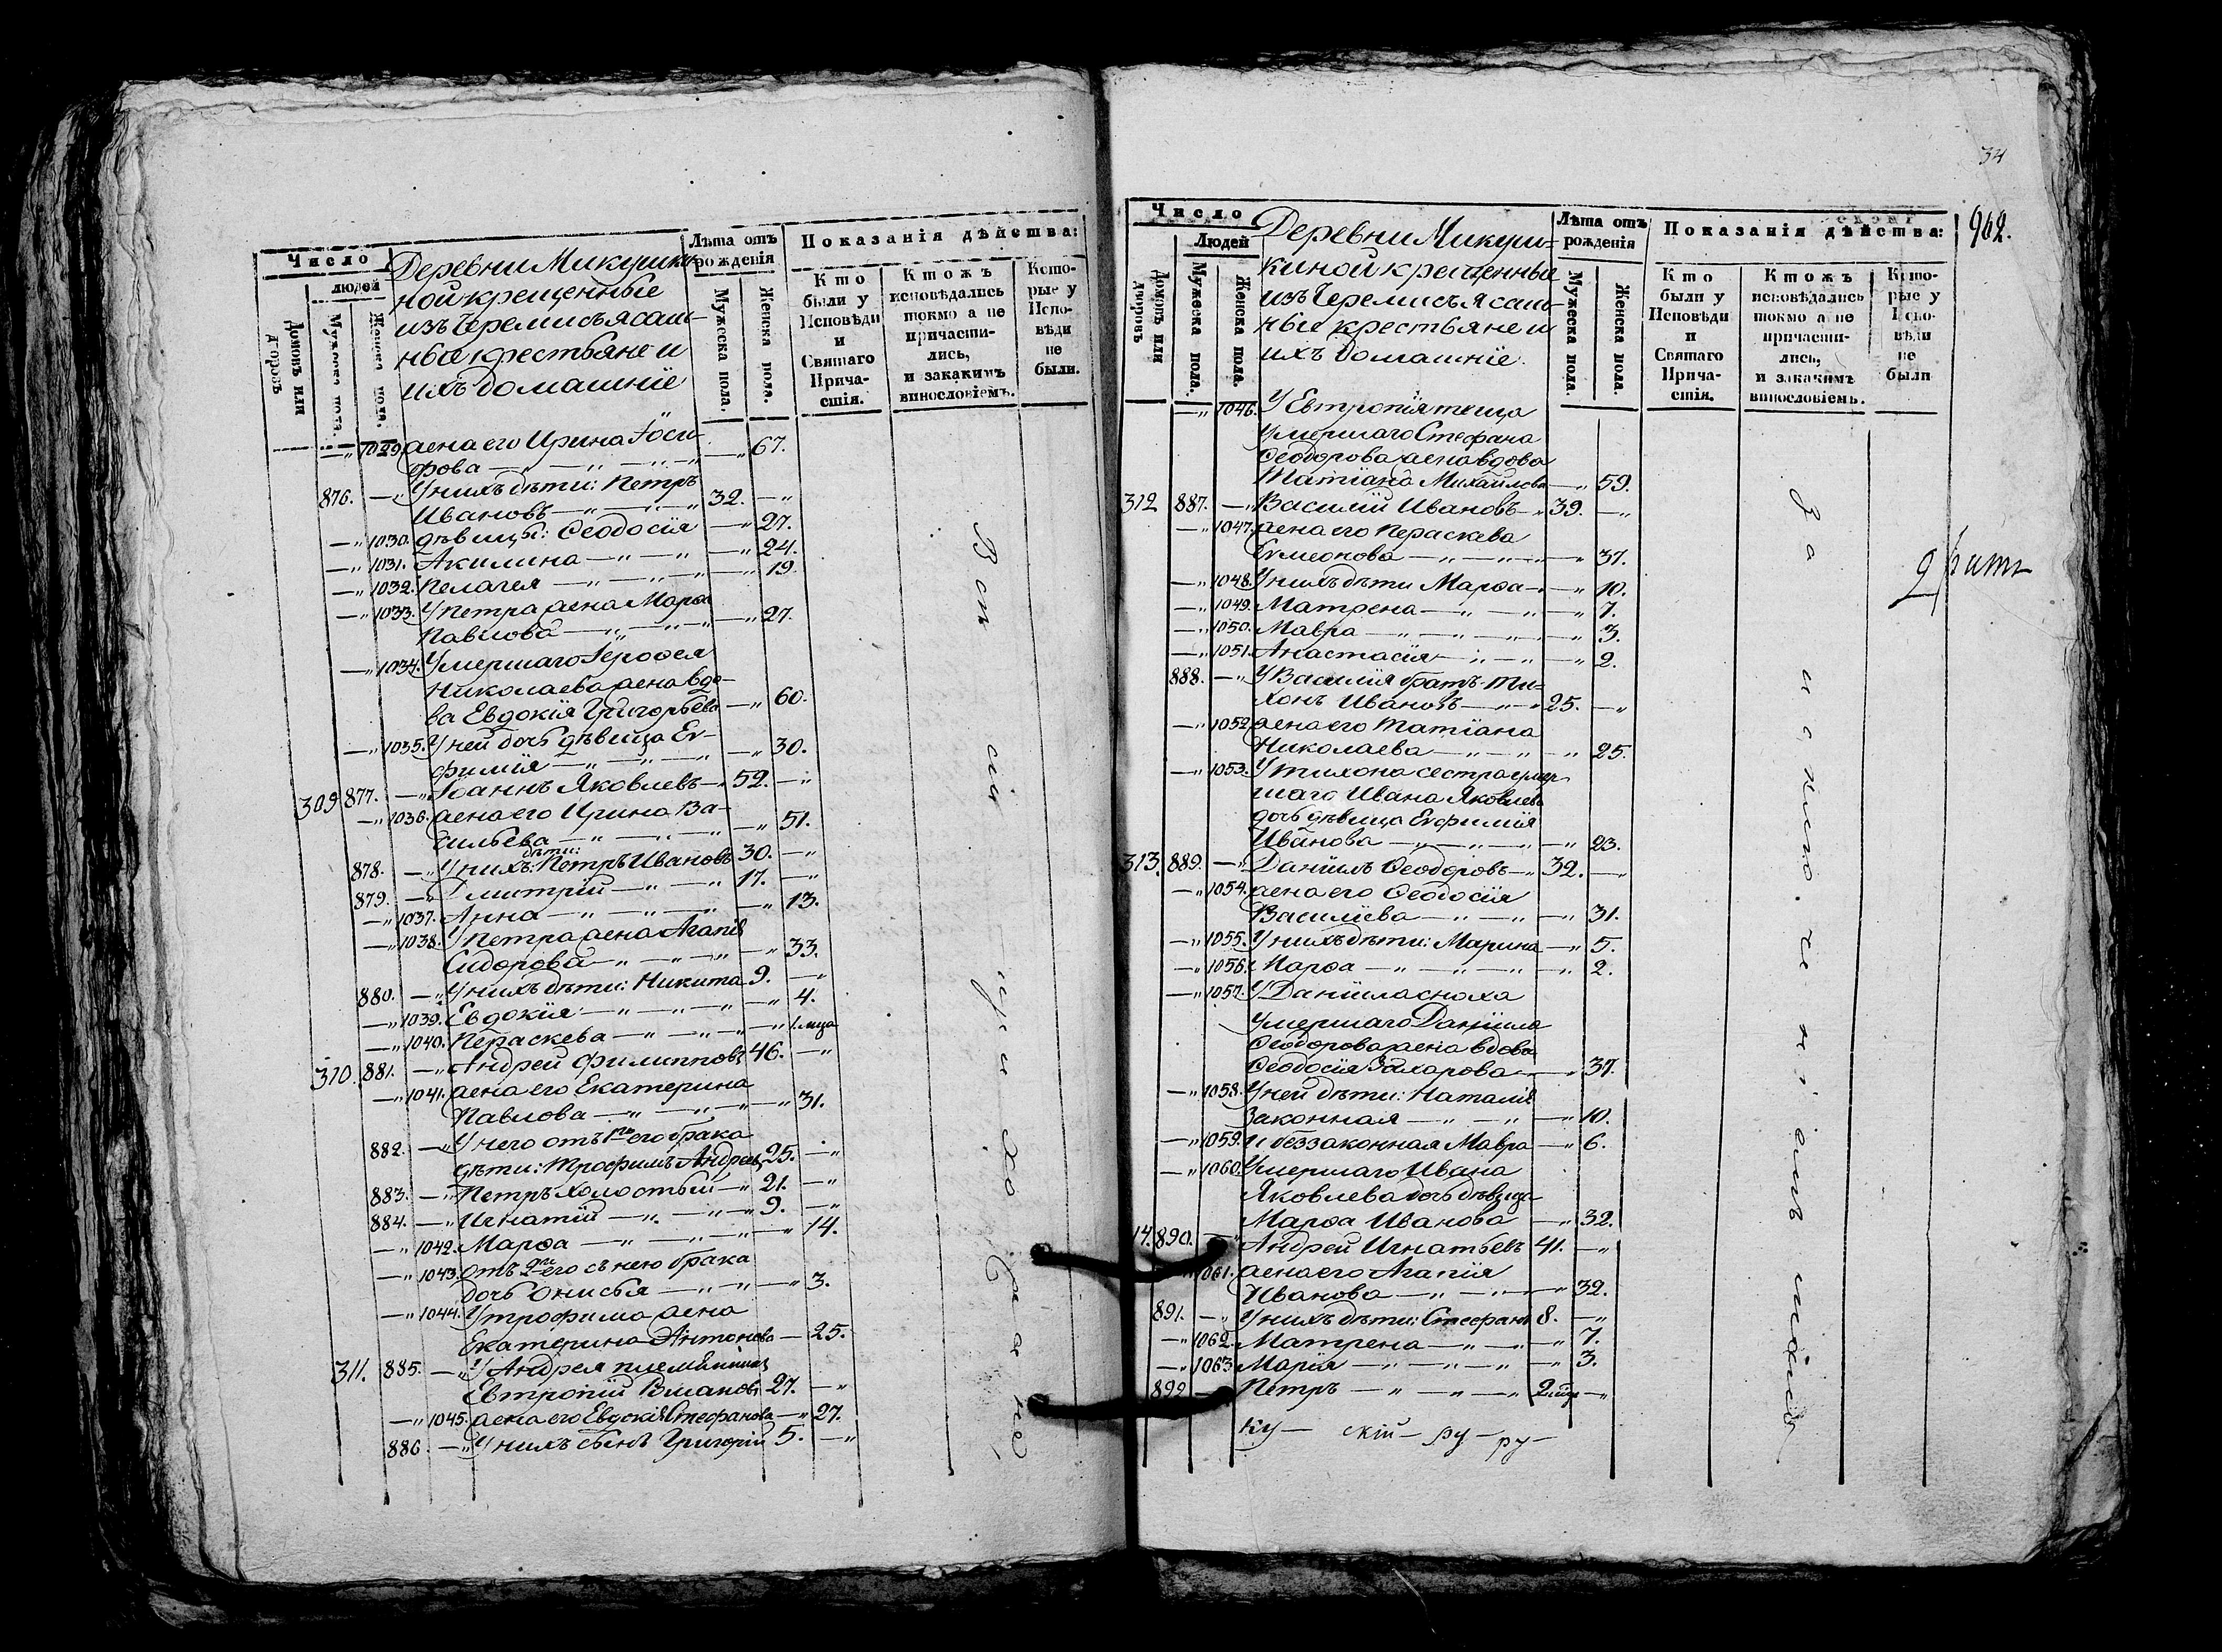 Число
людей
Домовъ или дворовъ
Мужеска пола.
Женска пола.
Деревни Микушки-
ной крещенные
изъ Черемисъ ясаш-
ные крестьяне и
ихъ домашніе
Лѣта отъ рожденія
Мужеска пола.
Женска пола.
Показанія дѣйства:
Кто были у Исповѣди и Святаго Причастія.
Ктожъ исповѣдались токмо а не причастились, и закакимъ винословіемъ.
Которые у Исповѣди не были.
—„ 1029. жена его Ирина
фова —„ —„ —„ —„ 67.
876. —„ У нихъ дѣти: Петръ
Ивановъ —„ —„ 32. —„
—„ 1030. дѣвицы: Ѳеодосія —„ 27.
—„ 1031. Акилина —„ —„ —„ 24.
—„ 1032. Пелагея —„ —„ —„ 19.
—„ 1033. У Петра жена Марѳа
Павлова —„ —„ —„ 27.
—„ 1034. Умершаго Іероѳея
Николаева жена вдо-
ва Евдокія Григорьева —„ 60.
—„ 1035. У ней дочь дѣвица Ев-
фимія —„ —„ —„ 30.
309 877. —„ Іоаннъ Яковлевъ —„ 52. —„
—„ 1036. жена его Ирина Ва-
сильева —„ —„ —„ 51.
дѣти:
878. —„ У нихъ Петръ Ивановъ 30. —„
879. —„ Дмитрій —„ —„ 17. —„
—„ 1037. Анна —„ —„ —„ 13.
—„ 1038. У Петра жена Агапія
Сидорова —„ —„ —„ 33.
880. —„ У нихъ дѣти: Никита 9. —„
—„ 1039. Евдокія —„ —„ —„ 4.
—„ 1040. Пераскева —„ —„ —„ 1. мца
310. 881. —„ Андрей Филипповъ 46. —„
—„ 1041. жена его Екатерина
Павлова —„ —„ —„ 31.
882. —„ У него отъ 1го его брака
дѣти: Трофимъ Андреевъ 25. —„
883. —„ Петръ холостый —„ 21. —„
884. —„ Игнатій —„ —„ 9. —„
—„ 1042. Марѳа —„ —„ —„ 14.
—„ 1043. отъ 2го его съ нею брака
дочь Онисья —„ —„ —„ 3.
—„ 1044. У Трофима жена
Екатерина Антонова — 25.
311. 885. —„ У Андрея племянникъ
Евтропій 27. —„
—„ 1045. жена его Евдокія Стефанова —„ 27.
886. —„ У нихъ сынъ Григорій 5. —„
34
962.
Число
Людей
Домовъ или дворовъ
Мужеска пола.
Женска пола.
Деревни Микуш-
киной крещенные
изъ Черемисъ ясаш-
ные крестьяне и
ихъ домашніе.
Лѣта отъ рожденія
Мужеска пола.
Женска пола.
Показанія дѣйства:
Кто были у Исповѣди и Святаго Причастія.
Ктожъ исповѣдались токмо а не причастились, и закакимъ винословіемъ.
Которые у Исповѣди не были
—„ 1046. У Евтропія теща
умершаго Стефана
Ѳеодорова жена вдова
Татіана Михайлова —„ 59.
312 887. —„ Василій Ивановъ —„ 39. —„
—„ 1047. жена его Пераскева
—„ —„ —„ 37.
—„ 1048. У нихъ дѣти Марѳа —„ 10.
—„ 1049. Матрена —„ —„ —„ 7.
—„ 1050. Мавра —„ —„ —„ 3.
—„ 1051. Анастасія —„ —„ —„ 2.
888. —„ У Василія братъ Ти-
хонъ Ивановъ —„ 25. —„
—„ 1052. жена его Татіана
Николаева —„ —„ —„ 25.
—„ 1053. У Тихона сестра умер-
шаго Ивана Яковлева
дочь дѣвица Евфимія
Иванова —„ —„ —„ 23.
313. 889. —„ Даніилъ Ѳеодоровъ —„ 32. —„
—„ 1054. жена его Ѳеодосія
Василіева —„ —„ —„ 31.
—„ 1055. У нихъ дѣти: Марина —„ 5.
—„ 1056. Марѳа —„ —„ —„ 2.
—„ 1057. У Даніила сноха
умершаго Даніила
Ѳеодорова жена вдова
Ѳеодосія Захарова —„ 37.
—„ 1058. У ней дѣти: Наталія
законная —„ —„ —„ 10.
—„ 1059. и беззаконная Мавра —„ 6.
—„ 1060. Умершаго Ивана
Яковлева дочь дѣвица
Марѳа Иванова —„ 32.
14. 890. —„ Андрей Игнатьевъ 41. —„
061. жена его Агапія
Иванова —„ —„ —„ 32.
891. —„ У нихъ дѣти: Стефанъ 8. —„
—„ 1062. Матрена —„ —„ —„ 7.
—„ 1063. Марія —„ —„ —„ 3.
892 — Петръ —„ —„ —„ 2. —„
ку— скій— ру— ру—